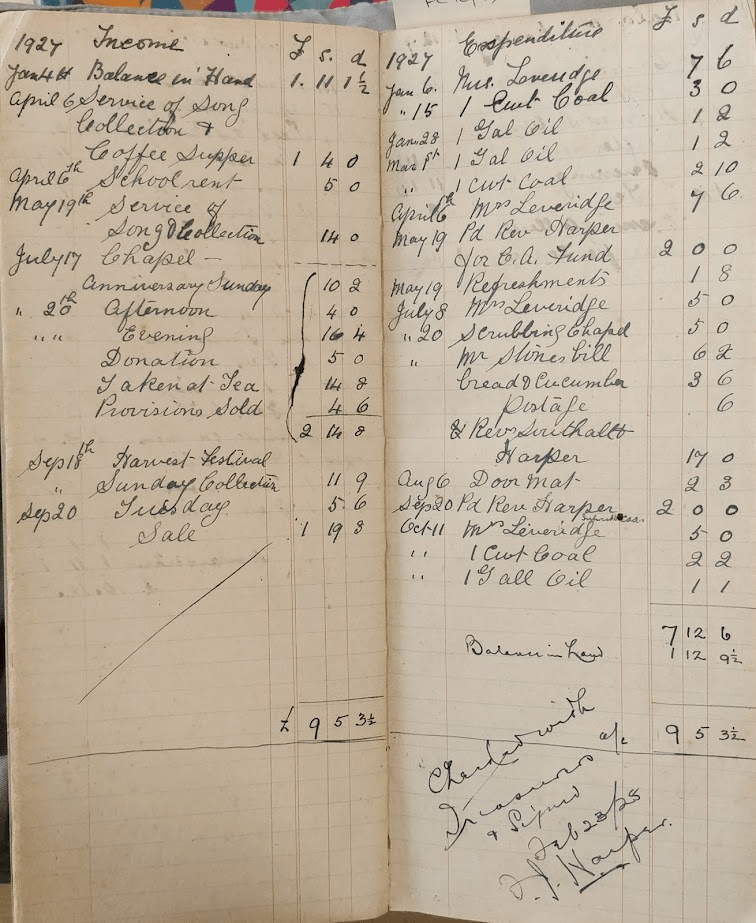 1927 Income £ s. d
Jan 4th Balance in Hand 1. 11 1½
April 6 Service of Song
Collection &
Coffee Supper 1 4 0
April 6th School rent 5 0
May 19th Service of
Song & Collection 14 0
July 17 Chapel —
Anniversary Sunday 10 2
" 20th Afternoon 4 0
" " Evening 16 4
Donation 5 0
Taken at Tea 14 8
Provisions Sold 4 6
2 14 8
Sep 18th Harvest Festival
" Sunday Collection 11 9
Sep 20 Tuesday 5 6
Sale 1 19 3
£ 9 5 3½
1927 Expenditure £ s d
Jan 6. Mrs. Leveridge 7 6
" 15 1 Cwt Coal 3 0
Jan. 28 1 Gal Oil 1 2
Mar 1st 1 Gal Oil 1 2
" 1 Cwt Coal 2 10
April 6th Mrs Leveridge 7 6
May 19 Pd Rev Harper
for C. A. Fund 2 0 0
May 19 Refreshments 1 8
July 8 Mrs Leveridge 5 0
" 20 Scrubbing Chapel 5 0
" Mr Stones bill 6 2
bread & Cucumber 3 6
Postage 6
& Revs Southall &
Harper 17 0
Aug 6 Door Mat 2 3
Sep 20 Pd Rev Harper 2 0 0
Oct 11 Mrs Leveridge 5 0
" 1 Cwt Coal 2 2
" 1 Gall Oil 1 1
7 12 6
Balance in hand 1 12 9½
9 5 3½
Checked with
Treasurers a/c
& Signed
Feb 23/28
Harper.